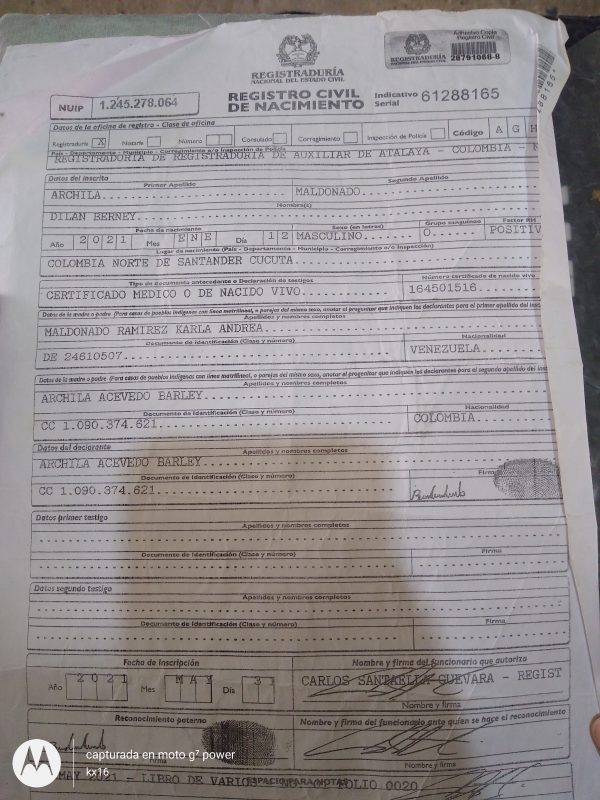 REGISTRADURÍA
NACIONAL DEL ESTADO CIVIL
Adhesivo Copia
Registro Civil
REGISTRADURÍA
28791068-8
NUIP 1.245.278.064
REGISTRO CIVIL
DE NACIMIENTO
Indicativo
Serial 61288165
Datos de la oficina de registro - Clase de oficina
Registraduría X Notaría Número Consulado Corregimiento Inspección de Policía Código A G H
País - Departamento - Municipio - Corregimiento e/o Inspección de Policía
REGISTRADURIA DE REGISTRADURIA DE AUXILIAR DE ATALAYA - COLOMBIA - N
Datos del inscrito
Primer Apellido Segundo Apellido
ARCHILA MALDONADO
Nombre(s)
DILAN BERNEY
Fecha de nacimiento Sexo (en letras) Grupo sanguíneo Factor RH
Año 2 0 2 1 Mes E N E Día 1 2 MASCULINO O POSITIV
Lugar de nacimiento (País - Departamento - Municipio - Corregimiento e/o Inspección)
COLOMBIA NORTE DE SANTANDER CUCUTA
Tipo de documento antecedente o Declaración de testigos Número certificado de nacido vivo
CERTIFICADO MEDICO O DE NACIDO VIVO 164501516
Datos de la madre o padre (Para casos de pueblos indígenas con línea matrilineal, o parejas del mismo sexo, anotar el progenitor que indiquen los declarantes para el primer apellido del insc
Apellidos y nombres completos
MALDONADO RAMIREZ KARLA ANDREA
Documento de identificación (Clase y número) Nacionalidad
DE 24610507 VENEZUELA
Datos de la madre o padre (Para casos de pueblos indígenas con línea matrilineal, o parejas del mismo sexo, anotar el progenitor que indiquen los declarantes para el segundo apellido del ins
Apellidos y nombres completos
ARCHILA ACEVEDO BARLEY
Documento de identificación (Clase y número) Nacionalidad
CC 1.090.374.621 COLOMBIA
Datos del declarante
Apellidos y nombres completos
ARCHILA ACEVEDO BARLEY
Documento de identificación (Clase y número) Firma
CC 1.090.374.621
Datos primer testigo
Apellidos y nombres completos
Documento de identificación (Clase y número) Firma
Datos segundo testigo
Apellidos y nombres completos
Documento de identificación (Clase y número) Firma
Fecha de inscripción Nombre y firma del funcionario que autoriza
Año 2 0 2 1 Mes M A Y Día 3 CARLOS SANTAELLA GUEVARA - REGIST
Nombre y firma
Reconocimiento paterno Nombre y firma del funcionario ante quien se hace el reconocimiento
Firma Nombre y firma
ESPACIO PARA NOTAS
MAY 2021 - LIBRO DE VARIOS FOLIO 0020
capturada en moto g⁷ power
kx16